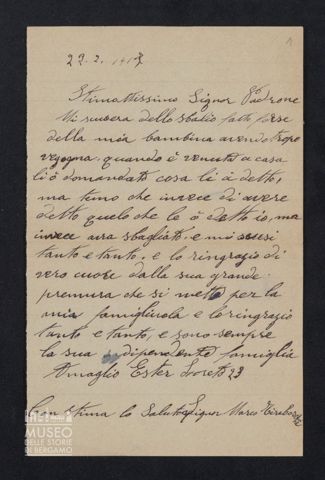 22. 2. 1918
1
Stimattissimo Signor Padrone
Mi scusera dello sbalio fatto forse
della mia bambina avendo tropo
vegogna quando è venuta a casa
li ò domandato cosa li à detto,
ma temo che invece di avere
detto quelo che le ò detto io, ma
invece avra sbagliato, e mi scusi
tanto e tanto, e lo ringrazio di
vero cuore dalla sua grande
premura che si mette per la
mia famiglivola e lo ringrazio
tanto e tanto, e sono sempre
la sua indipendente famiglia
Amaglio Ester Loreto 23
Con stima lo Saluto Signor Marco
MUSEO
DELLE STORIE
DI BERGAMO